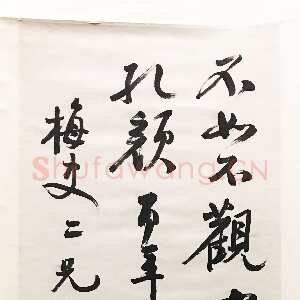 不如不觀
孔顏百年
梅史二兄
ShufawangCN